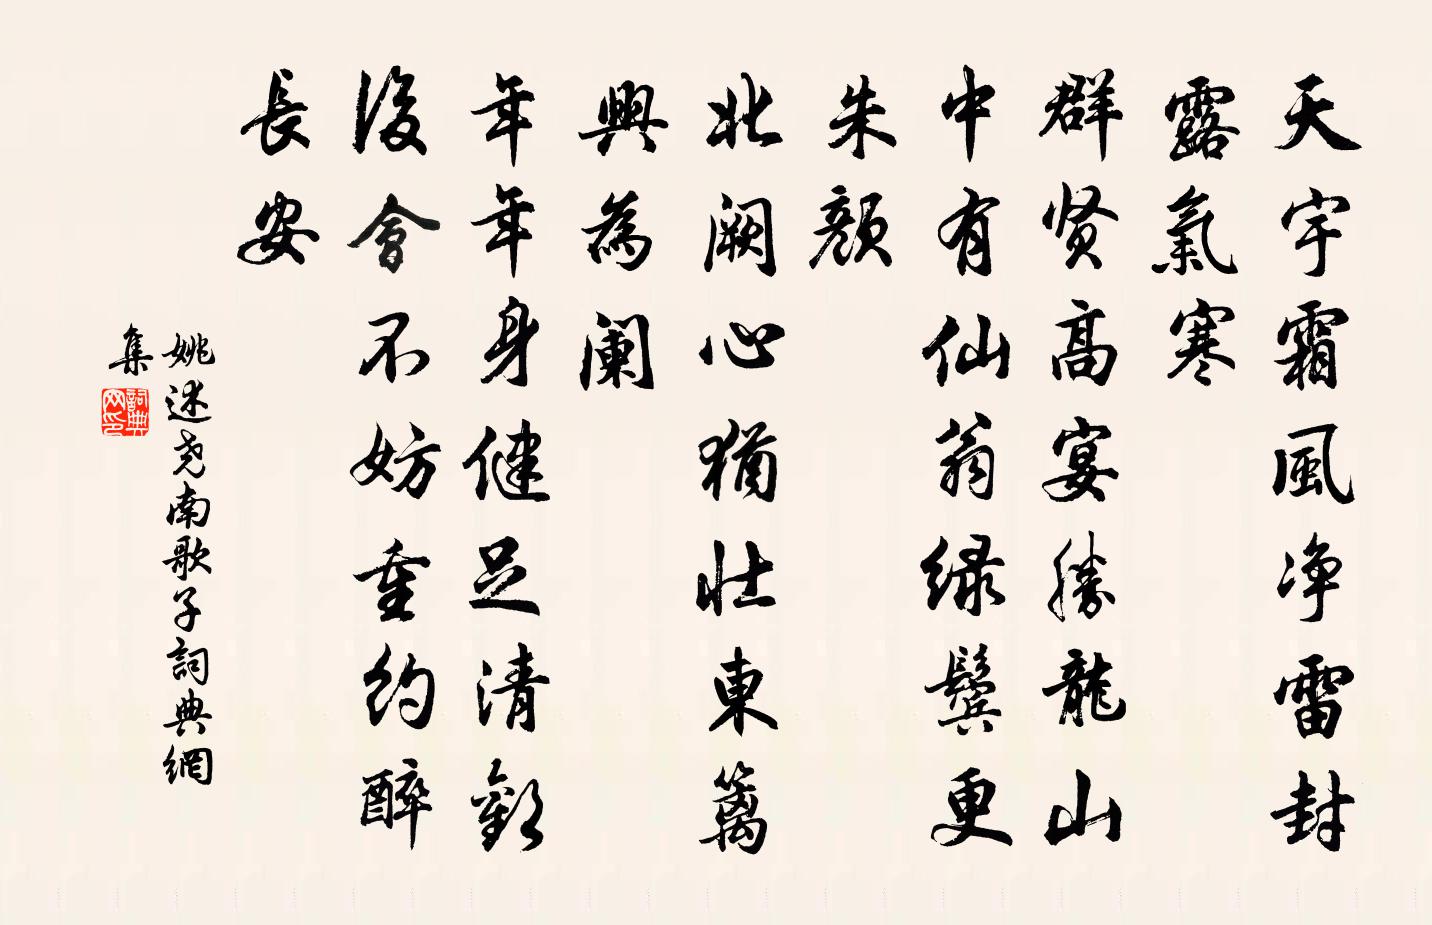 天宇霜風净雷封
露氣寒
群贤高宴勝龍山
中有仙翁绿鬓更
朱顔
北阙心猶壮東篱
興為阑
年年身健足清歡
後會不妨重约醉
長安
姚述尧南歌子詞典網
集
詞典网印